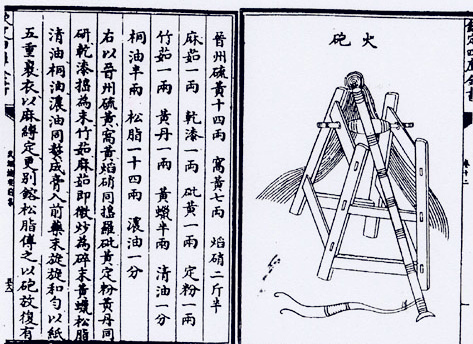 欽定四庫全書
卷十二
火砲
晉州硫黄十四兩 窩黄七兩 焰硝二斤半
麻茹一兩 乾漆一兩 砒黄一兩 定粉一兩
竹茹一兩 黄丹一兩 黄蠟半兩 清油一分
桐油半兩 松脂一十四兩 濃油一分
右以晉州硫黄窩黄焰硝同搗羅砒黄定粉黄丹同
研乾漆搗為末竹茹麻茹即微炒為碎末黄蠟松脂
清油桐油濃油同熬成膏入前藥末旋旋和勻以紙
五重裹衣以麻縛定更別鎔松脂傅之以砲放復有